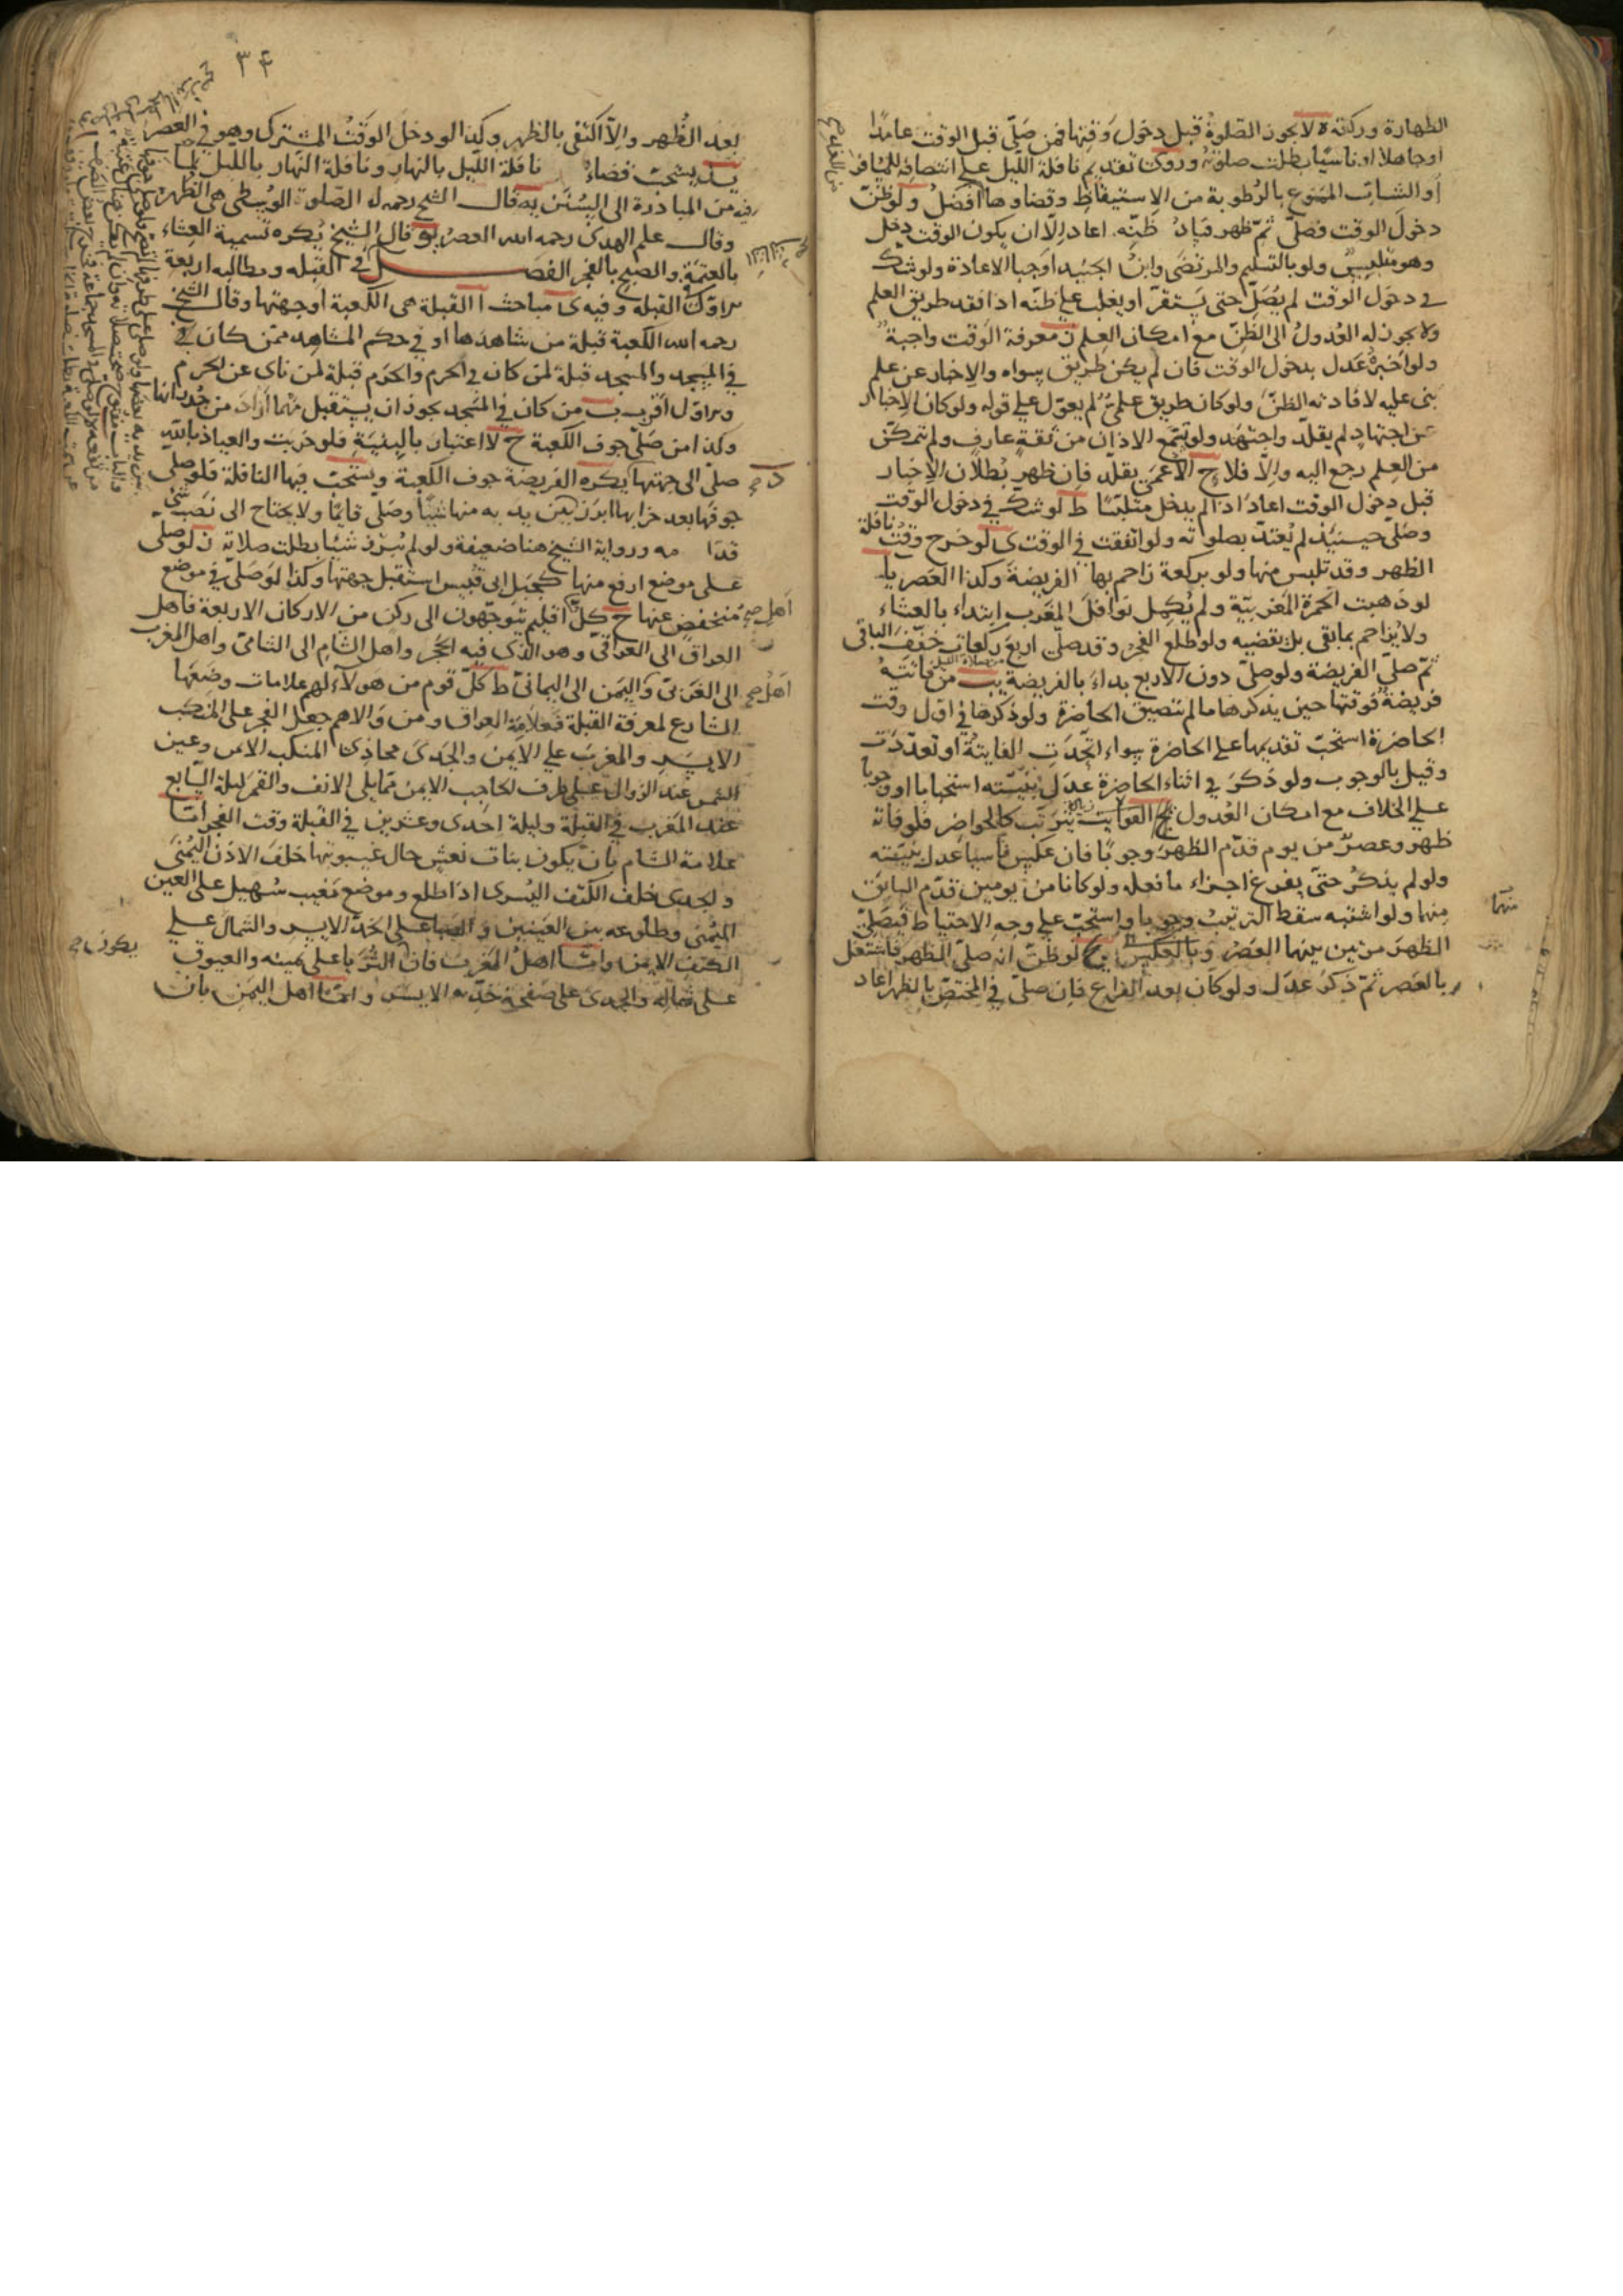 الطهارة وركعة ه لا يجوز الصلوة قبل دخول وقتها فمن صلّى قبل الوقت عامدًا
او جاهلا او ناسيًا بطلت صلوته وروى تقديم نافلة الليل على انتصافه للمسافر
او الشاب الممنوع بالرطوبة من الاستيقاظ وقضاوها افضل و لو ظنّ
دخول الوقت فصلّى ثمّ ظهر فساد ظنّه اعاد الّا ان يكون الوقت دخل
وهو متلبس ولو بالتسليم والمرتضى وابن الجنيد اوجبا الاعادة ولو شك
في دخول الوقت لم يُصَلِّ حتى يتيقن او يغلب على ظنّه اذا فقد طريق العلم
ولا يجوز له العدول الى الظن مع امكان العلم ز معرفة الوقت واجبة
ولو اخبره عدل بدخول الوقت فان لم يكن طريق سواه والاخبار عن علم
بنى عليه لافادته الظنّ ولو كان طريق علميّ لم يعوّل على قوله ولو كان الاخبار
عن اجتهاد لم يقلّد واجتهد ولو سمع الاذان من ثقة عارف ولم يتمكن
من العلم رجع اليه والّا فلا ح الاعمى يقلّد فان ظهر بطلان الاخبار
قبل دخول الوقت اعاد اذا لم يدخل متلبّسًا ط لو شك في دخول الوقت
وصلّى حينئذ لم يعتدّ بصلواته ولو اتفقت في الوقت ى لو خرج وقت نافلة
الظهر وقد تلبس منها ولو بركعة زاحم بها الفريضة وكذا العصر يا
لو ذهبت الحمرة المغربيّة ولم يكمل نوافل المغرب ابتداء بالعشاء
ولا يزاحم بما بقى بل يقضيه ولو طلع الفجر وقد صلّى اربع ركعات خفّف الباقى
ثمّ صلّى الفريضة ولو صلّى دون الاربع بداء بالفريضة يب من فاتته
فريضة فوقتها حين يذكرها ما لم تتضيق الحاضرة ولو ذكرها في اوّل وقت
الحاضرة استحبّ تقديمها على الحاضرة سواء اتّحدت الفايتة او تعدّدت
وقيل بالوجوب ولو ذكر في اثناء الحاضرة عدل بنيّته استحبابا او وجوبا
على الخلاف مع امكان العدول يج الفوايت تترتب كالحواضر فلو فاته
ظهر وعصر من يوم قدّم الظهر وجوبًا فان عكس ناسيا عدل بنيّته
ولو لم يذكر حتّى يفرغ اجزاء ما فعله ولو كانا من يومين قدّم السابق
منها ولو اشتبه سقط الترتيب وجوبا واستحبّ على وجه الاحتياط فيصلّى
الظهر مرتين بينهما العصر وبالعكس يج لو ظنّ انه صلّى الظهر فاشتغل
بالعصر ثمّ ذكر عدل ولو كان بعد الفراغ فان صلّى في المختصّ بالظهر اعاد
منهما
٣۴
بعد الظهر والّا اكتفى بالظهر وكذا لو دخل الوقت المشترك وهو في العصر
يد يستحبّ قضاء نافلة الليل بالنهار ونافلة النهار بالليل لما
فيه من المبادرة الى السنن يه قال الشيخ رحمه الله الصلوة الوسطى هى الظهر
وقال علم الهدى رحمه الله العصر يو قال الشيخ يكره تسمية العشاء
بالعتمة والصبح بالفجر الفصل في القبلة ومطالبه اربعة
الاول القبلة وفيه ى مباحث ا القبلة هى الكعبة او جهتها وقال الشيخ
رحمه الله الكعبة قبلة من شاهدها او في حكم المشاهد ممّن كان
في المسجد والمسجد قبلة لمن كان في الحرم والحرم قبلة لمن نأى عن الحرم
والاول اقرب ب من كان في المسجد يجوز ان يستقبل منها اراد من جدرانها
وكذا من صلّى جوف الكعبة ح لا اعتبار بالبنية فلو خربت والعياذ بالله
صلّى الى جهتها يكره الفريضة جوف الكعبة ويستحبّ فيها النافلة فلو صلّى
جوفها بعد خرابها ابرز بين يديه منها شيئًا وصلّى قايمًا ولا يحتاج الى نصب شئ
قدامه ورواية الشيخ هنا ضعيفة ولو لم يبرز شيئا بطلت صلاته ز لو صلى
على موضع ارفع منها كجبل ابى قبيس استقبل جهتها وكذا لو صلّى في موضع
منخفض عنها ح كلّ اقليم يتوجّهون الى ركن من الاركان الاربعة فاهل
العراق الى العراقىّ وهو الذى فيه الحجر واهل الشام الى الشامىّ واهل المغرب
الى الغربىّ واليمن الى اليمانىّ ط كلّ قوم من هولآء لهم علامات وضعها
الشارع لمعرفة القبلة فعلامة العراق ومن والاهم جعل الفجر على المنكب
الايسر والمغرب على الايمن والجدى محاذى المنكب الايمن وعين
الشمس عند الزوال على طرف الحاجب الايمن ممّا يلى الانف والقمر ليلة السابع
عند المغرب في القبلة وليلة احدى وعشرين في القبلة وقت الفجر امّا
علامة الشام بان يكون بنات نعش حال غيبوبتها خلف الاذن اليمنى
والجدى خلف الكتف اليسرى اذا طلع وموضع مغيب سهيل على العين
اليمنى وطلوعه بين العينين والصبا على الخدّ الايسر والشمال على
الكتف الايمن وامّا اهل المغرب فان الثريا على يمينه والعيوق
على شماله والجدى على صفحة خدّه الايسر وامّا اهل اليمن بان
اهل صح
اهل صح
يكون صح